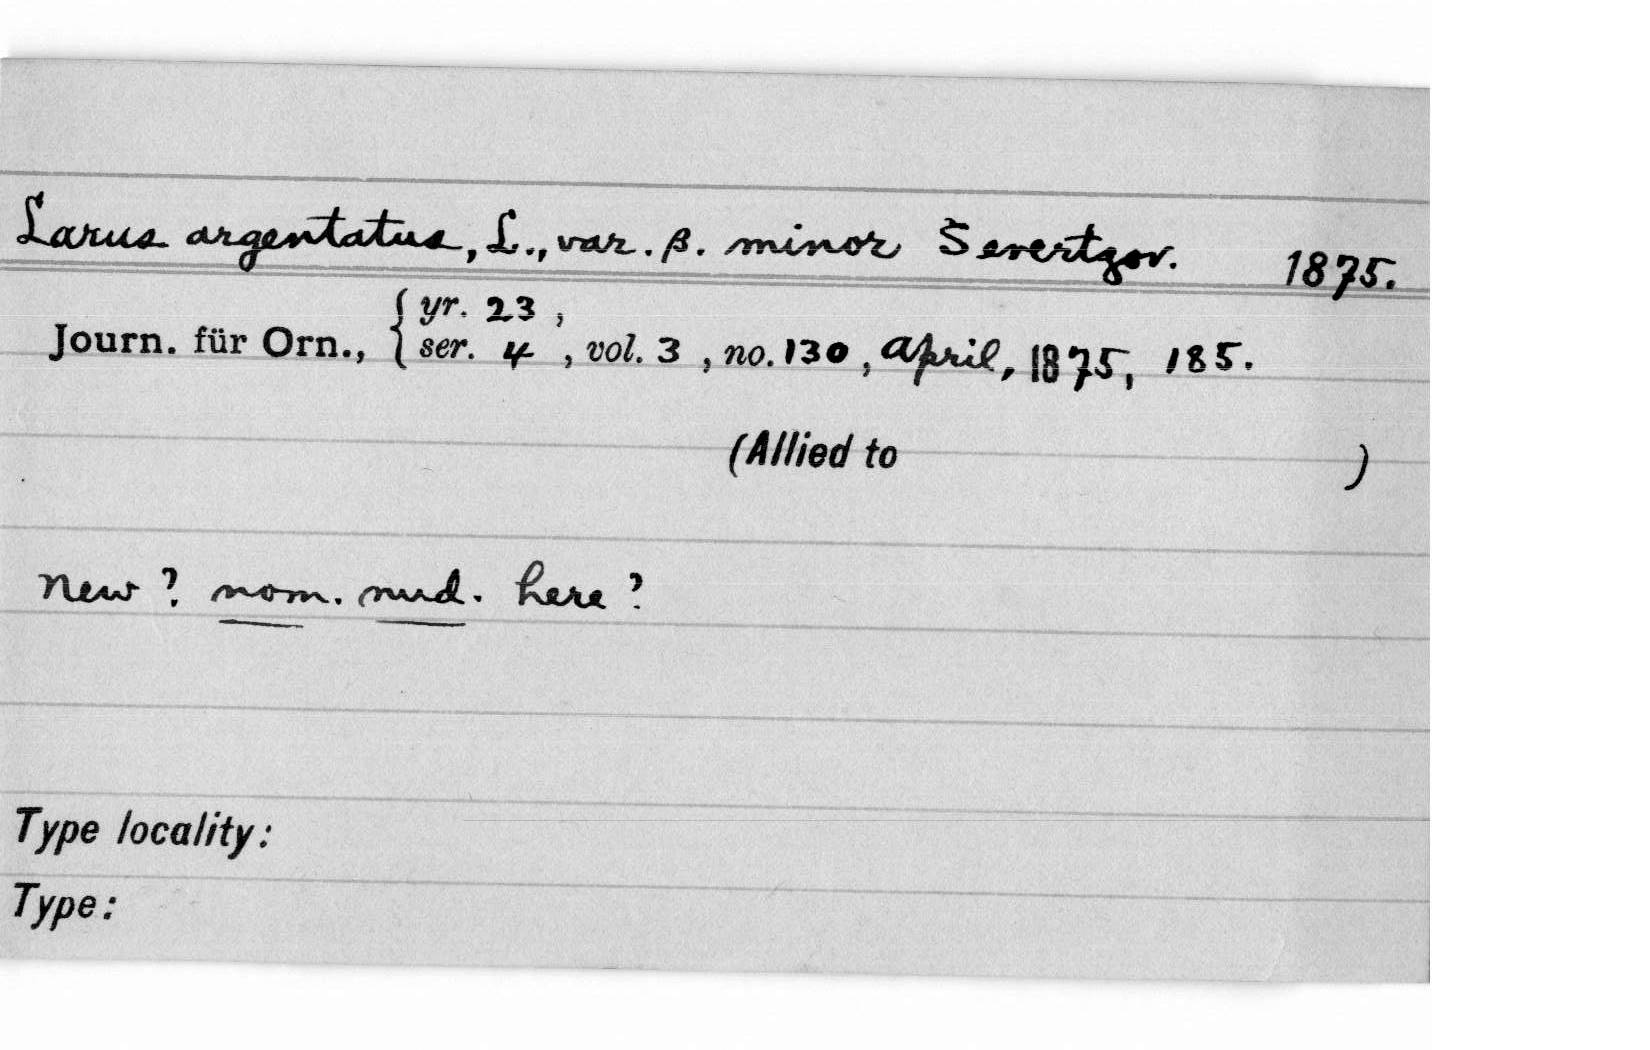 Larus argentatus, L., var. β. minor Severtzov. 1875.
Journ. für Orn., { yr. 23 ,
ser. 4 , vol. 3 , no. 130 , April, 1875, 185.
(Allied to )
New? nom. nud. here?
Type locality:
Type: